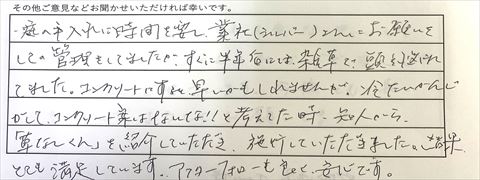 その他ご意見などお聞かせいただければ幸いです。
・庭の手入れに時間を要し、業社(シルバー)さんにお願いを
しての管理をしてましたが、すぐに半年后には、雑草で、頭を悩ませ
てました。コンクリートにすれば早いかもしれませんが、冷たいかんじ
がして、コンクリート案はないな!!と考えてた時、知人から、
草なしくんを紹介していただき、施行していただきました。結果、
とても満足しています。アフターフォローもよく、安心です。